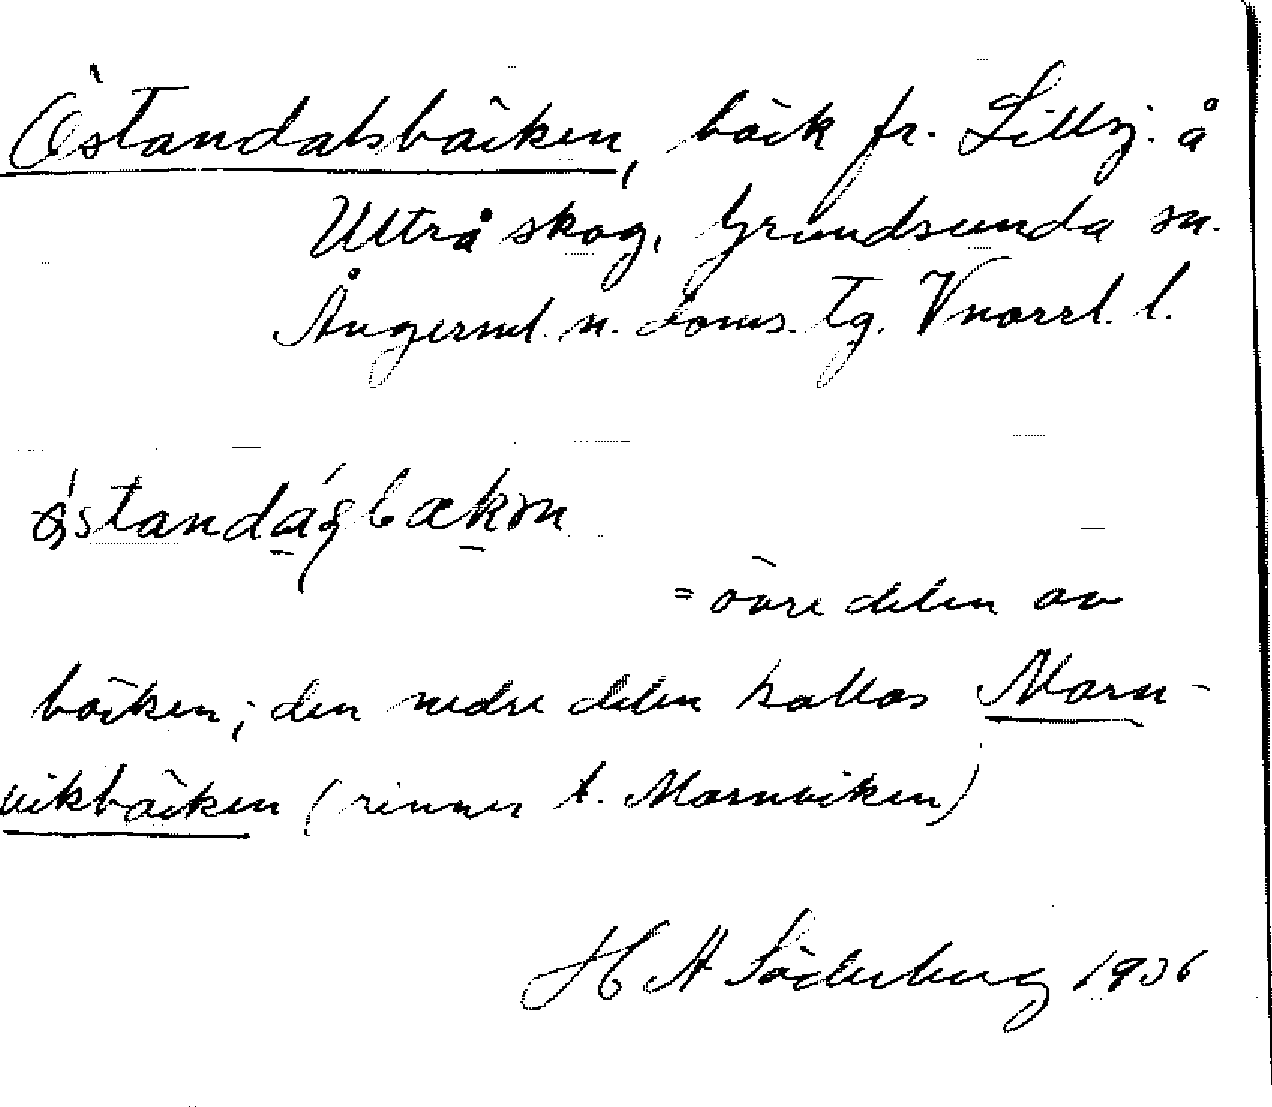 Östandalsbäcken, bäck fr. Lillsj. å
Ultrå skog, Grundsunda sn.
Ångerml. n. doms. tg. Vnorrl. l.
= övre delen av
bäcken; den nedre delen kallas Marn-
viksbäcken (rinner t. Marnviken)
H A Söderberg 1936